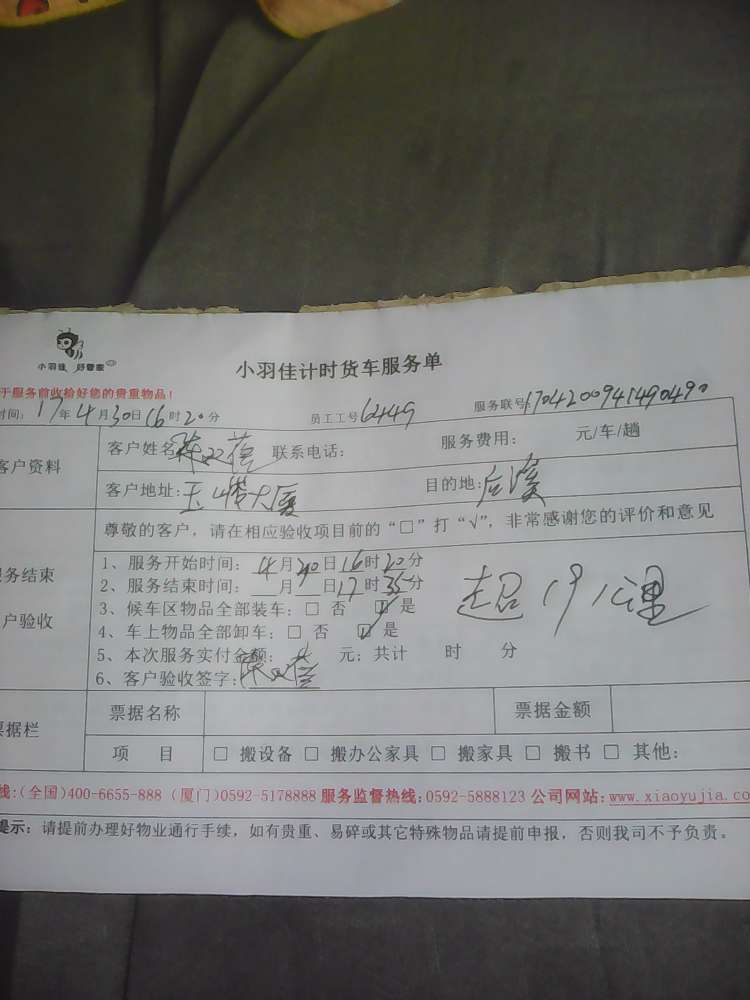 小羽佳 好管家
小羽佳计时货车服务单
于服务前收给好您的贵重物品!
时间: 17年4月30日16时20分 员工工号6449 服务联号:1704200941490490
客户资料
客户姓名 联系电话: 服务费用: 元/车/趟
客户地址: 大厦 目的地:后溪
尊敬的客户, 请在相应验收项目前的“□”打“√”, 非常感谢您的评价和意见
务结束
户验收
1、服务开始时间: 4月30日16时20分
2、服务结束时间: __月__日17时35分
3、候车区物品全部装车: □ 否 ☑ 是
4、车上物品全部卸车: □ 否 ☑ 是
超19公里
5、本次服务实付金额: 元; 共计 时 分
6、客户验收签字:
票据栏
票据名称 票据金额
项 目 □ 搬设备 □ 搬办公家具 □ 搬家具 □ 搬书 □ 其他:
线:(全国)400-6655-888 (厦门)0592-5178888 服务监督热线:0592-5888123 公司网站:www.xiaoyujia.co
提示: 请提前办理好物业通行手续, 如有贵重、易碎或其它特殊物品请提前申报, 否则我司不予负责。